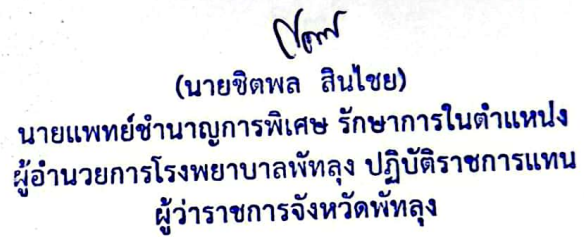 (นายชิตพล  สินไชย)
นายแพทย์ชำนาญการพิเศษ รักษาการในตำแหน่ง
ผู้อำนวยการโรงพยาบาลพัทลุง ปฏิบัติราชการแทน
ผู้ว่าราชการจังหวัดพัทลุง